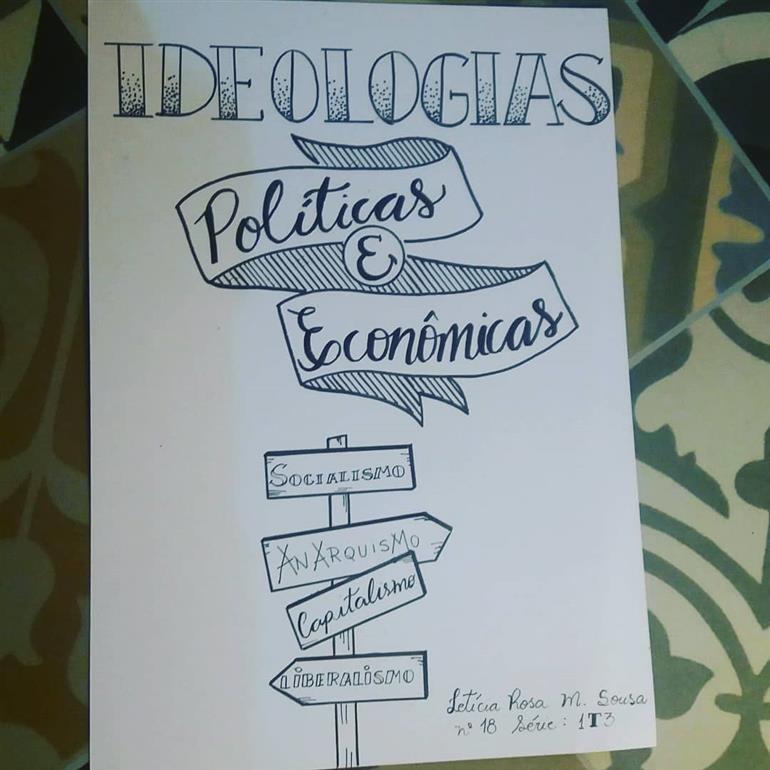 IDEOLOGIAS
Políticas
E
Econômicas
SOCIALISMO
ANARQUISMO
Capitalismo
LIBERALISMO
Letícia Rosa M. Sousa
nº 18 Série: 1T3